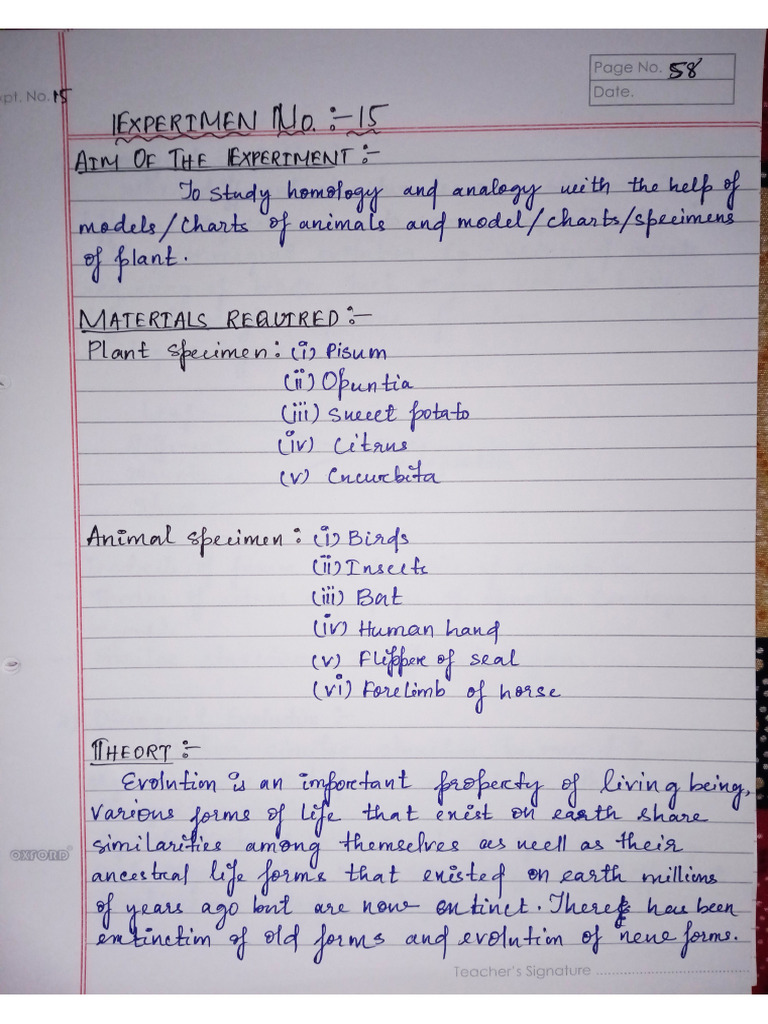 Page No. 58
Date.
xpt. No. 15
EXPERIMEN No. :- 15
AIM OF THE EXPERIMENT :-
To study homology and analogy with the help of
models/charts of animals and model/charts/specimens
of plant.
MATERIALS REQUIRED :-
Plant specimen : (i) Pisum
(ii) Opuntia
(iii) Sweet potato
(iv) Citrus
(v) Cucurbita
Animal specimen : (i) Birds
(ii) Insects
(iii) Bat
(iv) Human hand
(v) Flipper of seal
(vi) Forelimb of horse
THEORY :-
Evolution is an important property of living being,
various forms of life that exist on earth share
similarities among themselves as well as their
ancestral life forms that existed on earth millions
of years ago but are now extinct. There has been
extinction of old forms and evolution of new forms.
OXFORD
Teacher's Signature ........................................